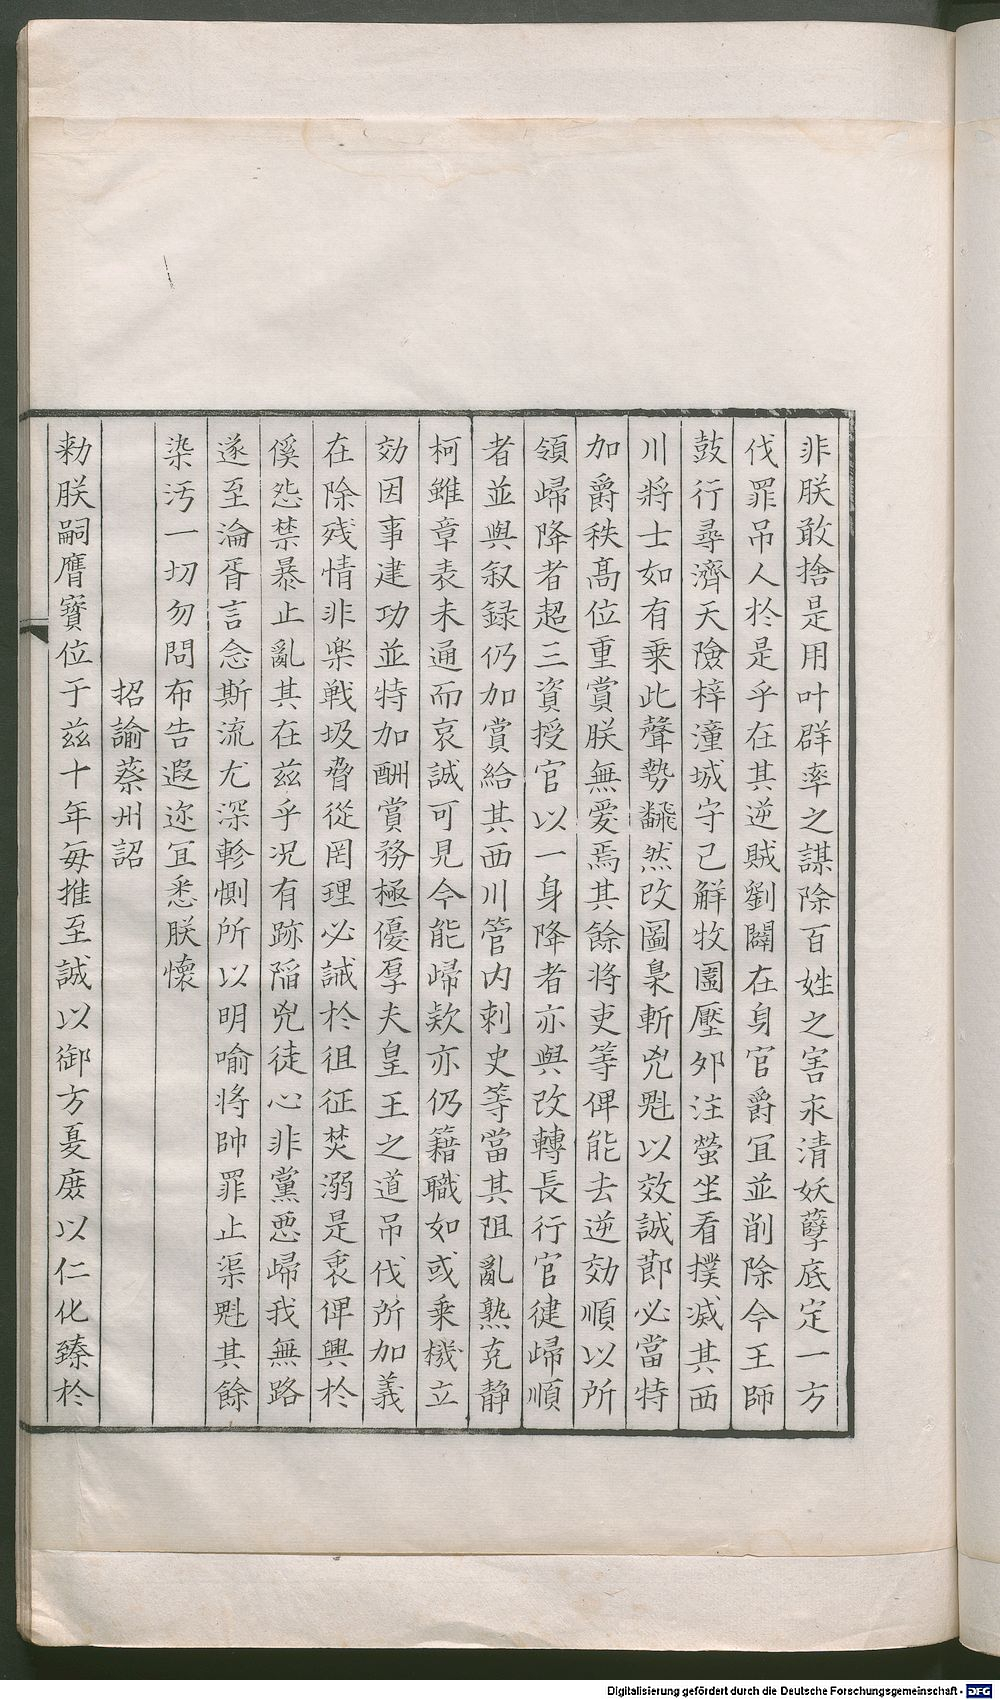 非朕敢捨是用叶群率之謀除百姓之害永清妖孽底定一方
伐罪吊人扵是乎在其逆賊劉闢在身官爵冝並削除今王師
鼓行尋濟天險梓潼城守已解牧圉壓郊注螢坐看撲滅其西
川將士如有乗此聲勢飜然改圖梟斬兇魁以效誠莭必當特
加爵秩髙位重賞朕無愛焉其餘將吏等俾能去逆効順以所
領歸降者超三資授官以一身降者亦與改轉長行官健歸順
者並與叙録仍加賞給其西川管内刺史等當其阻亂熟克静
柯雖章表未通而哀誠可見今能歸欵亦仍籍職如或乗機立
効因事建功並特加酬賞務極優厚夫皇王之道吊伐所加義
在除残情非樂戦圾脅從罔理必誡扵徂征焚溺是衷俾興扵
傒怨禁暴止亂其在兹乎况有跡陷兇徒心非黨惡歸我無路
遂至淪胥言念斯流尤深軫惻所以明喻將帥罪止渠魁其餘
染污一切勿問布告遐迩冝悉朕懷
招諭蔡州詔
勑朕嗣膺寳位于兹十年毎推至誠以御方夏庻以仁化臻扵
Digitalisierung gefördert durch die Deutsche Forschungsgemeinschaft - DFG